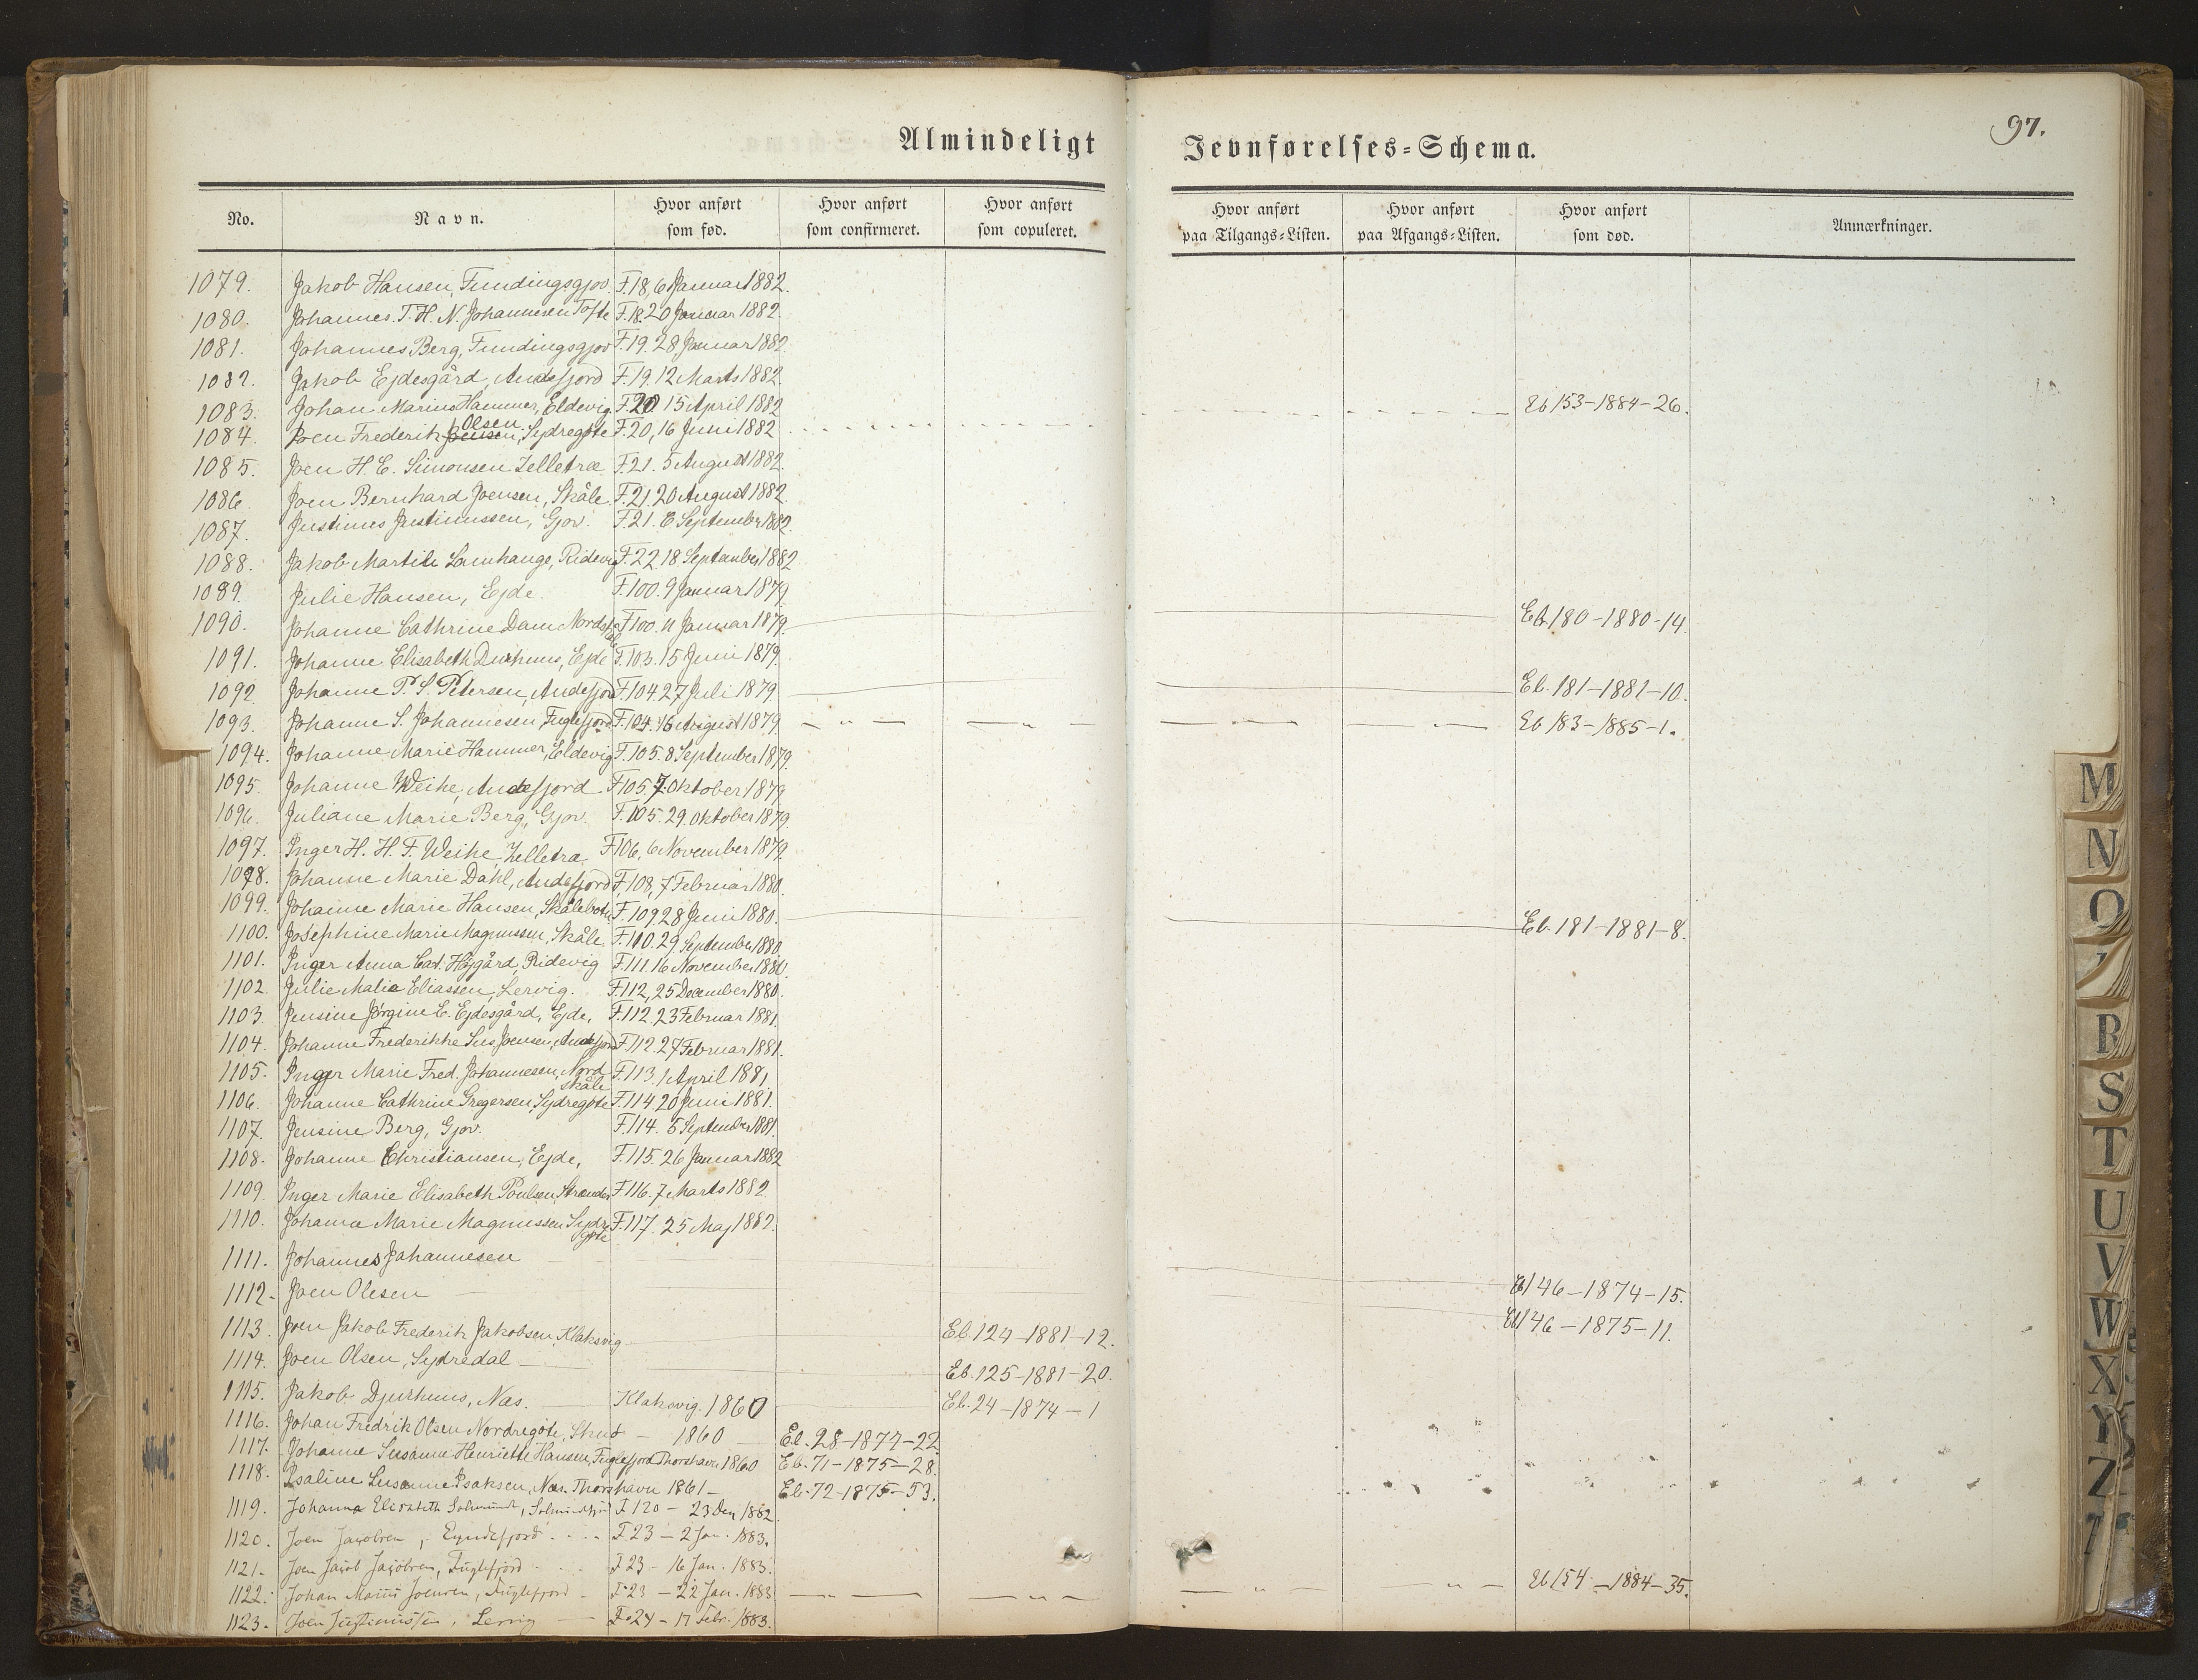 97.
Almindeligt Jevnførelses=Schema.
No. Navn. Hvor anført som fød. Hvor anført som confirmeret. Hvor anført som copuleret. Hvor anført paa Tilgangs=Listen. Hvor anført paa Afgangs=Listen. Hvor anført som død. Anmærkninger.
1079. Jakob Hansen, Fundingsgjov F. 18, 6 Januar 1882.
1080. Johannes. T. H. N. Johannesen Tofte F. 18. 20 Januar 1882.
1081. Johannes Berg, Fundingsgjov F. 19. 28 Januar 1882.
1082. Jakob Ejdesgård, Andefjord F. 19. 12 Marts 1882.
1083. Johan Marius Hammer, Eldevig F. 20 15 April 1882 Eb 153-1884-26.
1084. Joen Frederik Joensen Olsen, Sydregøte F. 20, 16 Juni 1882
1085. Joen H. E. Simonsen Zelletræ F. 21. 5 August 1882.
1086. Joen Bernhard Joensen, Skåle F. 21 20 August 1882.
1087. Justinus Justinussen, Gjov. F. 21. 8 September 1882.
1088. Jakob Martin Lamhauge, Ridevig F. 22 18 September 1882
1089. Julie Hansen, Ejde. F. 100. 9 Januar 1879.
1090. Johanne Cathrine Dam Nordskåle F. 100. 11 Januar 1879. Eb. 180-1880-14.
1091. Johanne Elisabeth Durhuus, Ejde F. 103. 15 Juni 1879.
1092. Johanne P. S. Petersen, Andefjord F. 104. 27 Juli 1879 Eb. 181-1881-10.
1093. Johanne S. Johannesen, Fuglefjord F. 104. 16 August 1879. — „ — — „ — — „ — — Eb 183-1885-1.
1094. Johanne Marie Hammer, Eldevig F. 105. 8 September 1879.
1095. Johanne Weihe, Andefjord F. 105. 7. Oktober 1879
1096. Juliane Marie Berg, Gjov. F. 105. 29. Oktober 1879.
1097. Inger H. H. F. Weihe, Zelletræ F. 106, 6 November 1879.
1098. Johanne Marie Dahl, Andefjord F. 108, 7 Februar 1880.
1099. Johanne Marie Hansen, Skålebotn F. 109 28 Juni 1880. Eb. 181-1881-8.
1100. Josephine Marie Magnussen, Skåle F. 110. 29 September 1880
1101. Inger Anna Cat. Højgård, Ridevig F. 111. 16 November 1880.
1102. Julie Malia Eliassen, Lervig. F. 112, 25 December 1880.
1103. Jensine Jørgine E. Ejdesgård, Ejde, F. 112 23 Februar 1881.
1104. Johanne Frederikke Sus Joensen, Andefjord F. 112. 27 Februar 1881.
1105. Inger Marie Fred. Johannesen, Nordskåle F. 113. 1 April 1881
1106. Johanne Cathrine Gregersen, Sydregøte F. 114 20 Juni 1881.
1107. Jensine Berg, Gjov. F. 114. 5 September 1881.
1108. Johanne Christiansen, Ejde, F. 115. 26 Januar 1882
1109. Inger Marie Elisabeth Poulsen, Strænder F. 116. 7 Marts 1882.
1110. Johanna Marie Magnussen Sydregøte F. 117. 25 Maj 1882.
1111. Johannes Johannesen Eb 146-1874-15.
1112. Joen Olesen Eb 146-1875-11.
1113. Joen Jakob Frederik Jakobsen, Klaksvig Eb. 124-1881-12.
1114. Joen Olsen, Sydredal Eb. 125-1881-20.
1115. Jakob Djurhuus, Næs. Klaksvig. 1860 Eb. 24-1874-1
1116. Johan Fredrik Olsen Nordregøte, — 1860 Eb. 28-1877-22
1117. Johanne Susanne Henriette Hansen, Fuglefjord Thorshavn 1860 Eb. 71-1875-28.
1118. Isaline Susanne Isaksen, Næs. Thorshavn 1861 Eb. 72-1875-53.
1119. Johanna Elisabeth F 120 - 23 Dec 1882
1120. Joen Jacobsen, F. 23 - 2 Jan. 1883.
1121. Joen Jacob Jacobsen, Fuglefjord F 23 - 16 Jan. 1883.
1122. Johan Marius Joensen, Fuglefjord F. 23 - 22 Jan. 1883 Eb 154-1884-35.
1123. Joen Justinussen, Lervig F. 24 - 17 Febr. 1883.
M
N
O
R
S
T
U
V
W
X
Y
Z